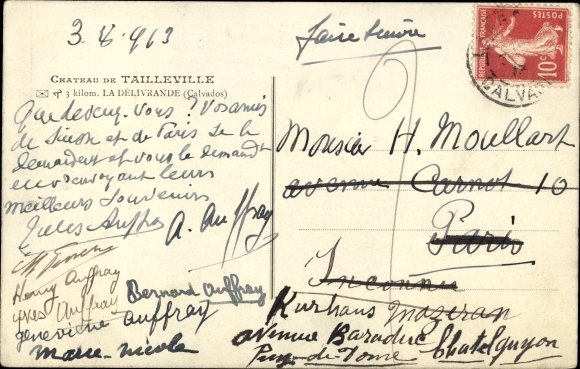 3.8.913
faire suivre
CHATEAU DE TAILLEVILLE
3 kilom. LA DÉLIVRANDE (Calvados)
RÉPUBLIQUE FRANÇAISE
POSTES
10c
CALVADOS
Que devenez-vous? Vos amis
de et de Paris se le
demandent et vous le demandent
en vous envoyant leurs
meilleurs souvenirs
Jules Auffray
A. Auffray
Henry Auffray
Yves Auffray
Bernard Auffray
geneviève Auffray
Marie-nicole
Monsieur H. Moullart
avenue Carnot 10
Paris
Inconnu
Kurhaus
avenue Baraduc Chatelguyon
Puy-de-Dome